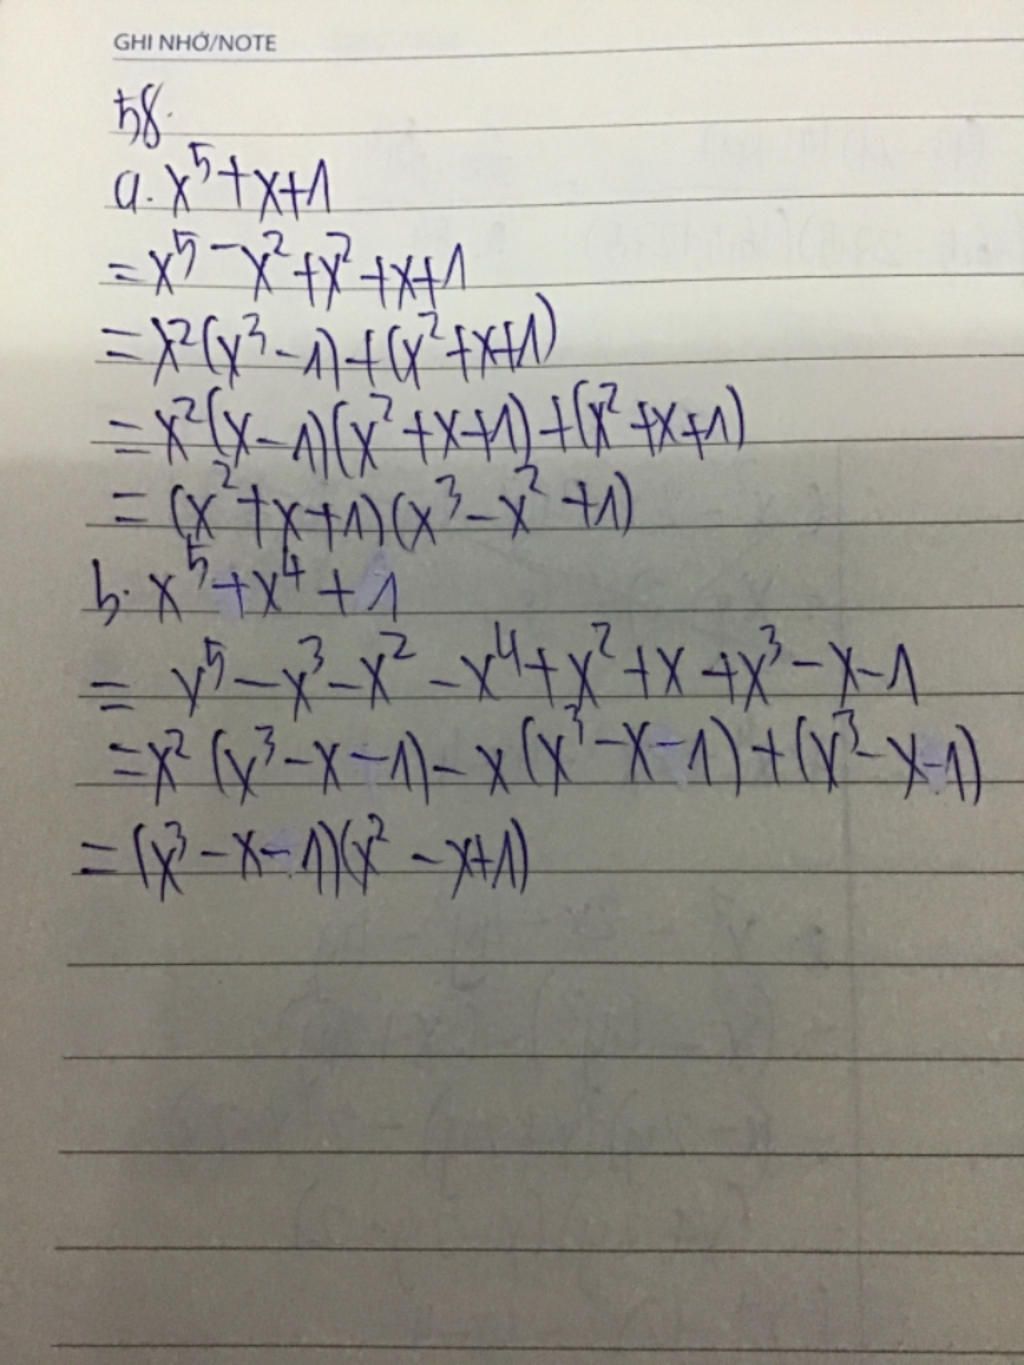 GHI NHỚ/NOTE
58.
a. x⁵+x+1
= x⁵-x²+x²+x+1
= x²(x³-1)+(x²+x+1)
= x²(x-1)(x²+x+1)+(x²+x+1)
= (x²+x+1)(x³-x²+1)
b. x⁵+x⁴+1
= x⁵-x³-x²-x⁴+x²+x+x³-x-1
= x²(x³-x-1)-x(x³-x-1)+(x³-x-1)
= (x³-x-1)(x²-x+1)